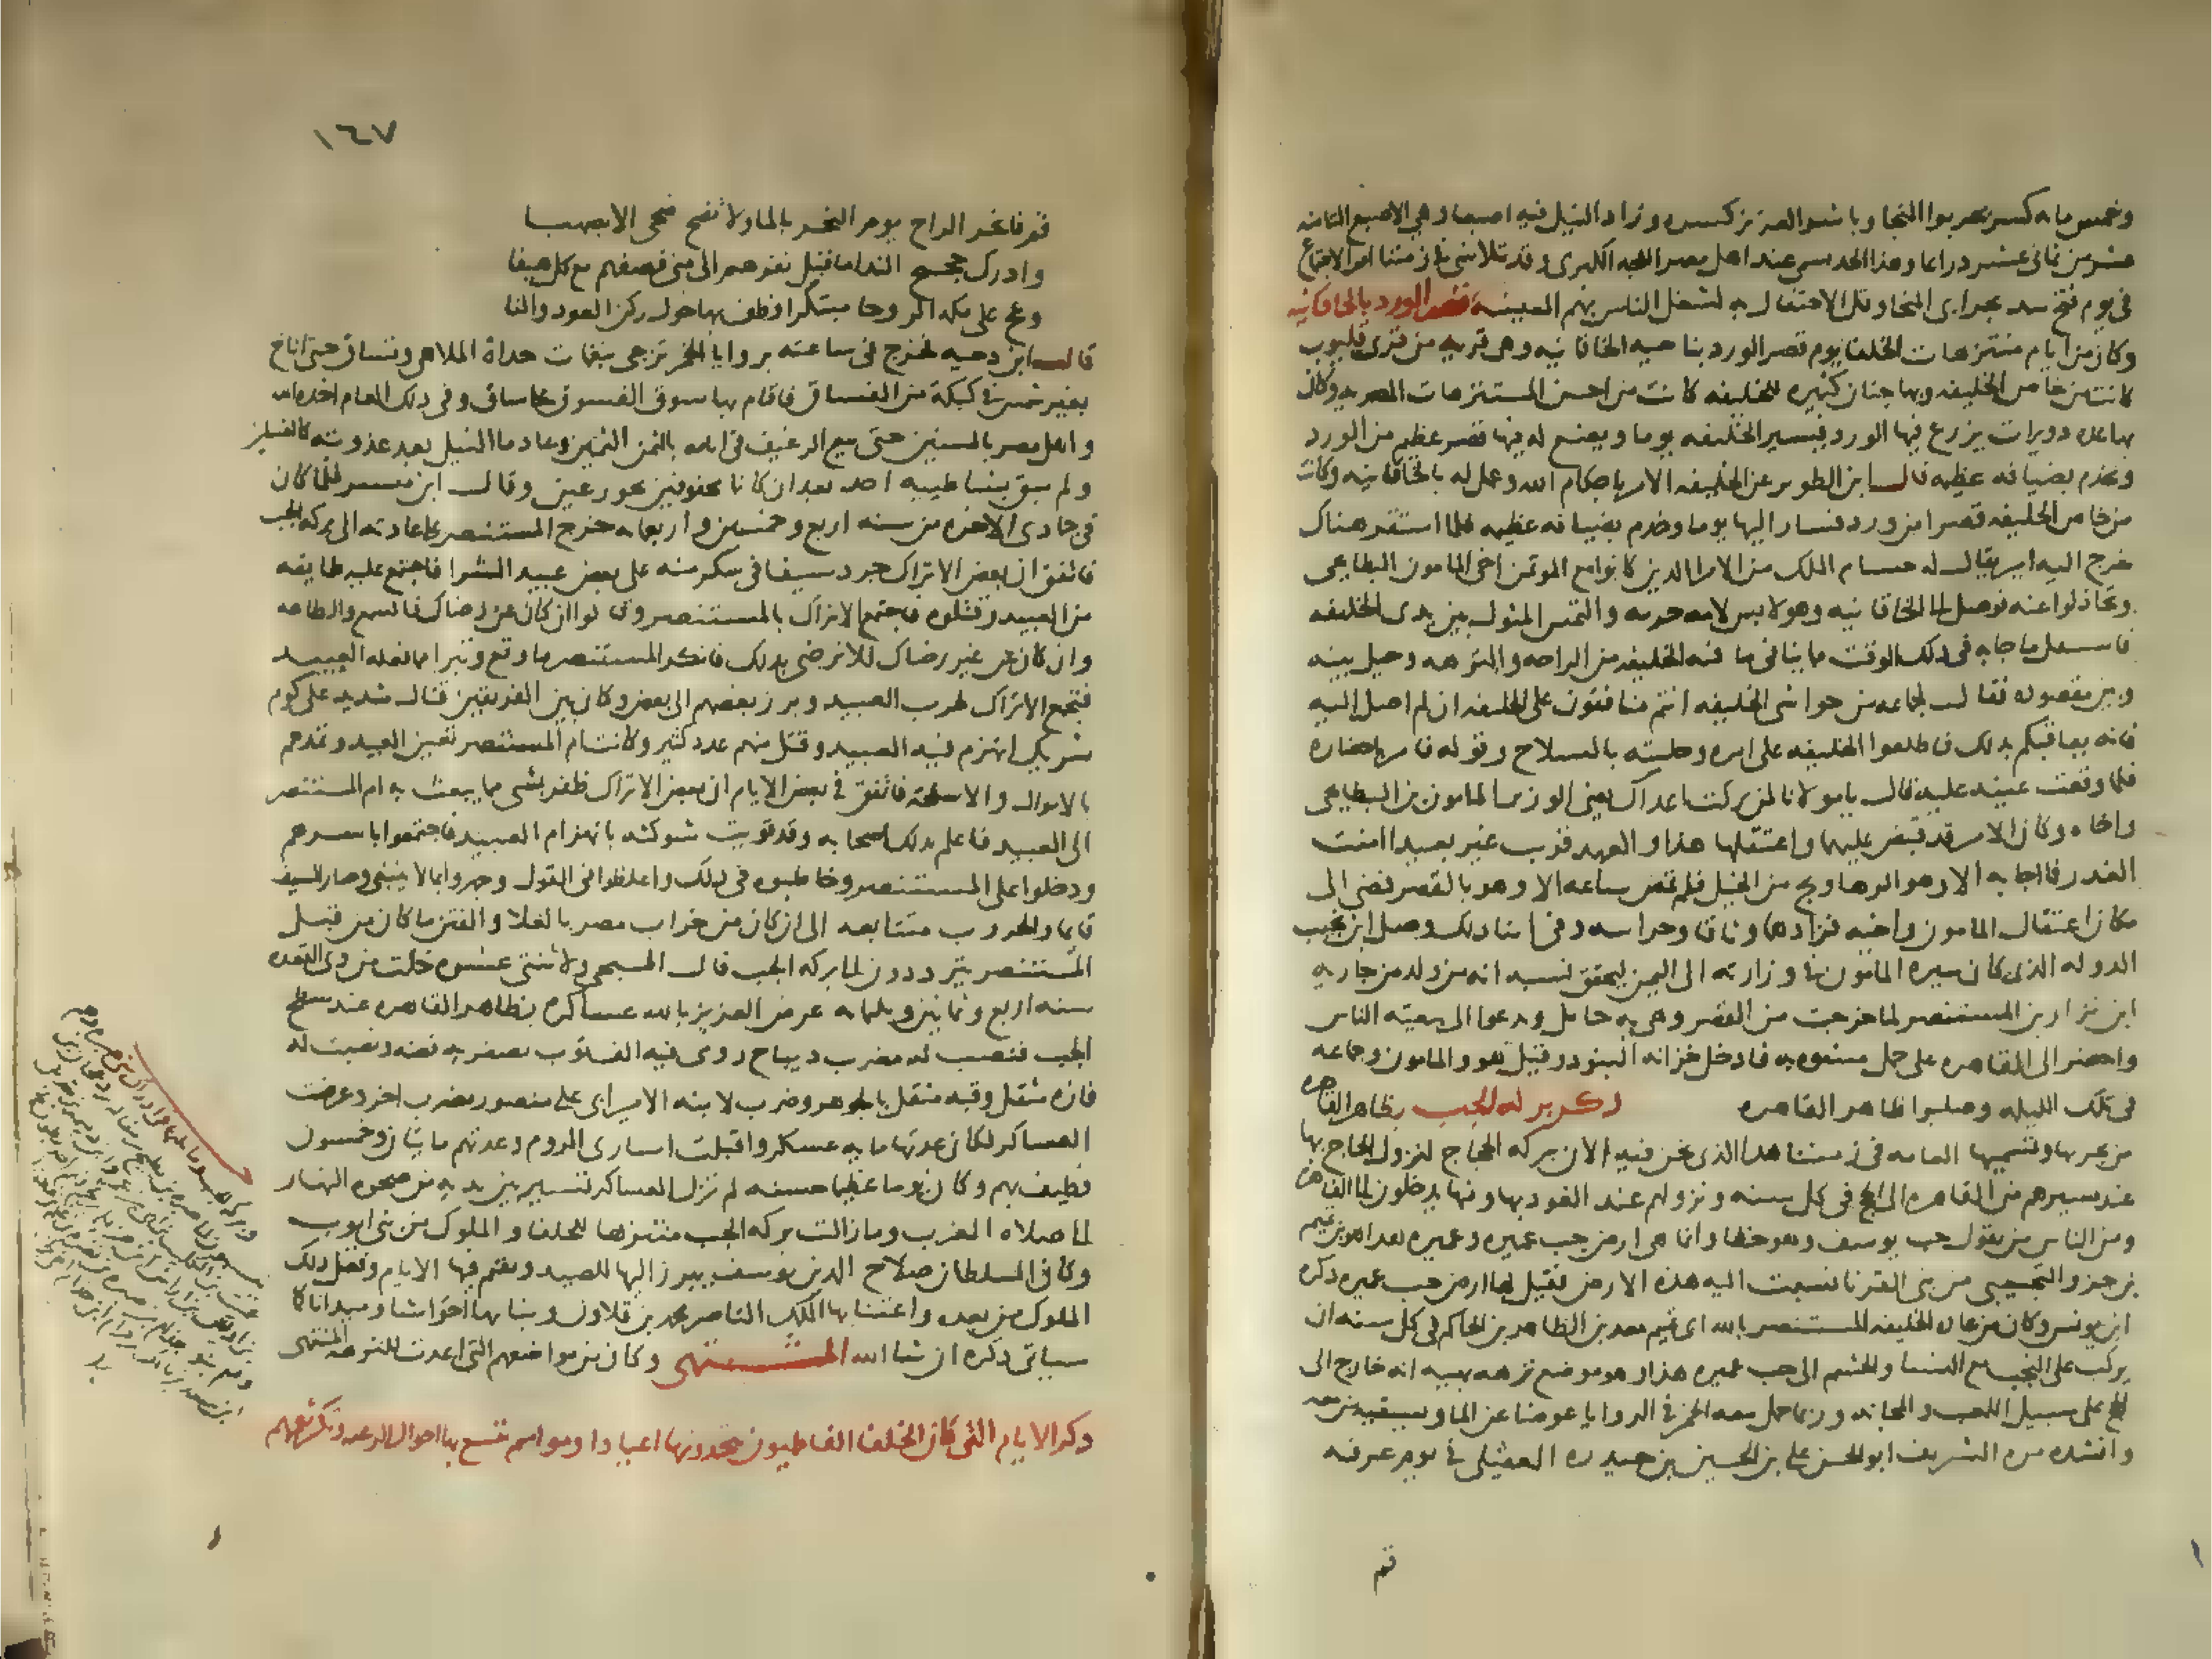 وخمس مايه كسر بحر ابوا المنجا وباشر العزيز كسره وزاد النيل فيه اصبعا وهي الاصبع الثامنه
عشر من ثماني عشر دراعا وهذا الحد يسمى عند اهل مصر اللجه الكبرى وقد تلاشى في زمننا امر الاجتماع
في يوم فتح سد بحر ابى المنجا وقل الاحتفال به لشغل الناس بهم المعيشه قصر الورد بالخاقانيه
وكان من ايام منتزهات الخلفا يوم قصر الورد بناحيه الخاقانيه وهي قريه من قرى قليوب
كانت من خاص الخليفه وبها جنان كثيره للخليفه كانت من احسن المستنزهات المصريه وكان
بها عده دويرات يزرع فيها الورد فيسير الخليفه يوما ويصنع له فيها قصر عظيم من الورد
ويخدم بضيافه عظيمه قال ابن الطوير عن الخليفه الامر باحكام الله وعمل له بالخاقانيه وكانت
من خاص الخليفه قصرا من ورد فسار اليها يوما وخدم بضيافه عظيمه فلما استقر هناك
خرج اليه امير يقال له حسام الملك من الامرا الدين كانوا مع الموتمن اخي المامون البطايحي
وتخاذلوا عنه فوصل الى الخاقانيه وهو لابس لامه حربه والتمس المثول بين يدى الخليفه
فاستثقل ما جا به في ذلك الوقت مما ينافي ما فيه الخليفه من الراحه والنزهه وحيل بينه
وبين مقصوده فقال لجماعه من حواشى الخليفه انتم منافقون على الخليفه ان لم اصل اليه
فانه يعاقبكم بذلك فاطلعوا الخليفه على امره وحليته بالسلاح وقوله فامر باحضاره
فلما وقعت عينه عليه قال يا مولانا لمن تركت اعداك يعني الوزير المامون بن البطايحي
واخاه وكان الامر قد قبض عليهما واعتقلهما هذا والعهد قريب غير بعيد اامنت
الغدر فما اجابه الا وهو على الرهاويج من الخيل فلم تمض ساعه الا وهو بالقصر فمضى الى
مكان اعتقال المامون واخيه فزادهما وثاقا وحراسه وفي اثنا ذلك وصل ابن نجيب
الدوله الذى كان سيره المامون في وزارته الى اليمن ليحقق نسبه انه من ولد من جاريه
ابن نزار بن المستنصر لما خرجت من القصر وهي به حامل ويدعوا الى بيعته الناس
واحضر الى القاهره على جمل مشوه به فادخل خزانه البنود وقتل هو والمامون وجماعه
في تلك الليله وصلبوا ظاهر القاهره ذكر بركه الجب بظاهر القاهره
من بحريها وتسميها العامه في زمننا هذا الذى نحن فيه الان بركه الحجاج لنزول الحاج بها
عند مسيرهم من القاهره الى الحج في كل سنه ونزولهم عند العود بها ومنها يدخلون الى القاهره
ومن الناس من يقول جب يوسف وهو خطا وانما هي ارض جب عميره وعميره هذا هو بن تميم
بن جزو التجيبى من بنى القرنا نسبت اليه هذه الارض فقيل لها ارض جب عميره ذكره
ابن يونس وكان من عاده الخليفه المستنصر بالله ابى تميم معد بن الظاهر بن الحاكم في كل سنه ان
يركب على النجب مع النسا والحشم الى جب عميره هذا وهو موضع نزهه بهيبه انه خارج الى
الحج على سبيل اللعب والمجانه وربما حمل معه الخمر في الروايا عوضا عن الما ويسقيه من معه
وانشده مره الشريف ابو الحسن على بن الحسين بن حيدره العقيلى في يوم عرفه
قم
١٦٧
قم فانحر الراح يوم النحر بالما ولا تضح ضحى الا بصهبا
وادرك حجيج الندامى قبل نفرهم الى منى قصفهم مع كل هيفا
وعج على مكه الروحا مبتكرا وطف بها حول ركن العود والنا
قال ابن دحيه فخرج في ساعته بروايا الخمر تزجى بنغمات حداة الملاهى وتساق حتى اناخ
بعين شمس في كبكة من الفساق فاقام بها سوق الفسوق على ساق وفي ذلك العام اخذه الله
واهل مصر بالسنين حتى بيع الرغيف في ايامه بالثمن الثمين وعاد ما النيل بعد عذوبته كالغسلين
ولم يبق بشاطييه احد بعد ان كانا محفوفين بحور عين وقال ابن ميسر فلما كان
في جمادى الاخره من سنه اربع وخمسين واربعمايه خرج المستنصر على عادته الى بركه الجب
فاتفق ان بعض الاتراك جرد سيفا في سكر منه على بعض عبيد الشرا فاجتمع عليه طايفه
من العبيد وقتلوه فاجتمع الاتراك بالمستنصر وقالوا ان كان عن رضاك فالسمع والطاعه
وان كان عن غير رضاك فلا نرضى بذلك فانكر المستنصر ما وقع وتبرا مما فعله العبيد
فتجمع الاتراك لحرب العبيد وبرز بعضهم الى بعض وكان بين الفريقين قتال شديد على كوم
شريك انهزم فيه العبيد وقتل منهم عدد كثير وكانت ام المستنصر تعين العبيد وتمدهم
بالاموال والاسلحه فاتفق في بعض الايام ان بعض الاتراك ظفر بشى مما يبعث به ام المستنصر
الى العبيد فاعلم بذلك اصحابه وقد قويت شوكته بانهزام العبيد فاجتمعوا باسرهم
ودخلوا على المستنصر وخاطبوه في ذلك واغلظوا في القول وجهروا بما لا ينبغى وصار السيف
قايما والحروب متتابعه الى ان كان من خراب مصر بالغلا والفتن ما كان من قبل
المستنصر يترددون الى بركه الجب قال المسبحى ولاثنتى عشره خلت من ذى القعده
سنه اربع وثمانين وثلثمايه عرض العزيز بالله عساكره بظاهر القاهره عند سطح
الجب فنصب له مضرب ديباج رومى فيه الف ثوب بصفريه فضه ونصبت له
فازه مثقل وقبه مثقل بالجوهر وضرب لابنه الامير ابى على منصور مضرب اخر وعرضت
العساكر فكان عدتها مايه عسكر واقبلت اسارى الروم وعدتهم مايتان وخمسون
فطيف بهم وكان يوما عظيما حسنا لم تزل العساكر تسير بين يديه من ضحوه النهار
الى صلاه المغرب وما زالت بركه الجب منتزها للخلفا والملوك من بنى ايوب
وكان السلطان صلاح الدين يوسف يبرز اليها للصيد ويقيم فيها الايام وفعل ذلك
الملوك من بعده واعتنا بها الملك الناصر محمد بن قلاون وبنا بها احواشا وميدانا كما
سياتى ذكره ان شا الله المشتهى وكان من مواضعهم التى اعدت للنزهه المشتهى
ذكر الايام التى كان الخلفا الفاطميون يتخذونها اعيادا ومواسم تتسع بها احوال الرعيه وتكثر نعمهم